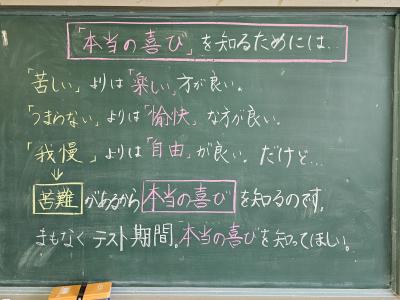 「本当の喜び」を知るためには…
「苦しい」よりは「楽しい」方が良い。
「つまらない」よりは「愉快」な方が良い。
「我慢」よりは「自由」が良い。だけど…
↓
苦難があるから本当の喜びを知るのです。
まもなくテスト期間。本当の喜びを知ってほしい。